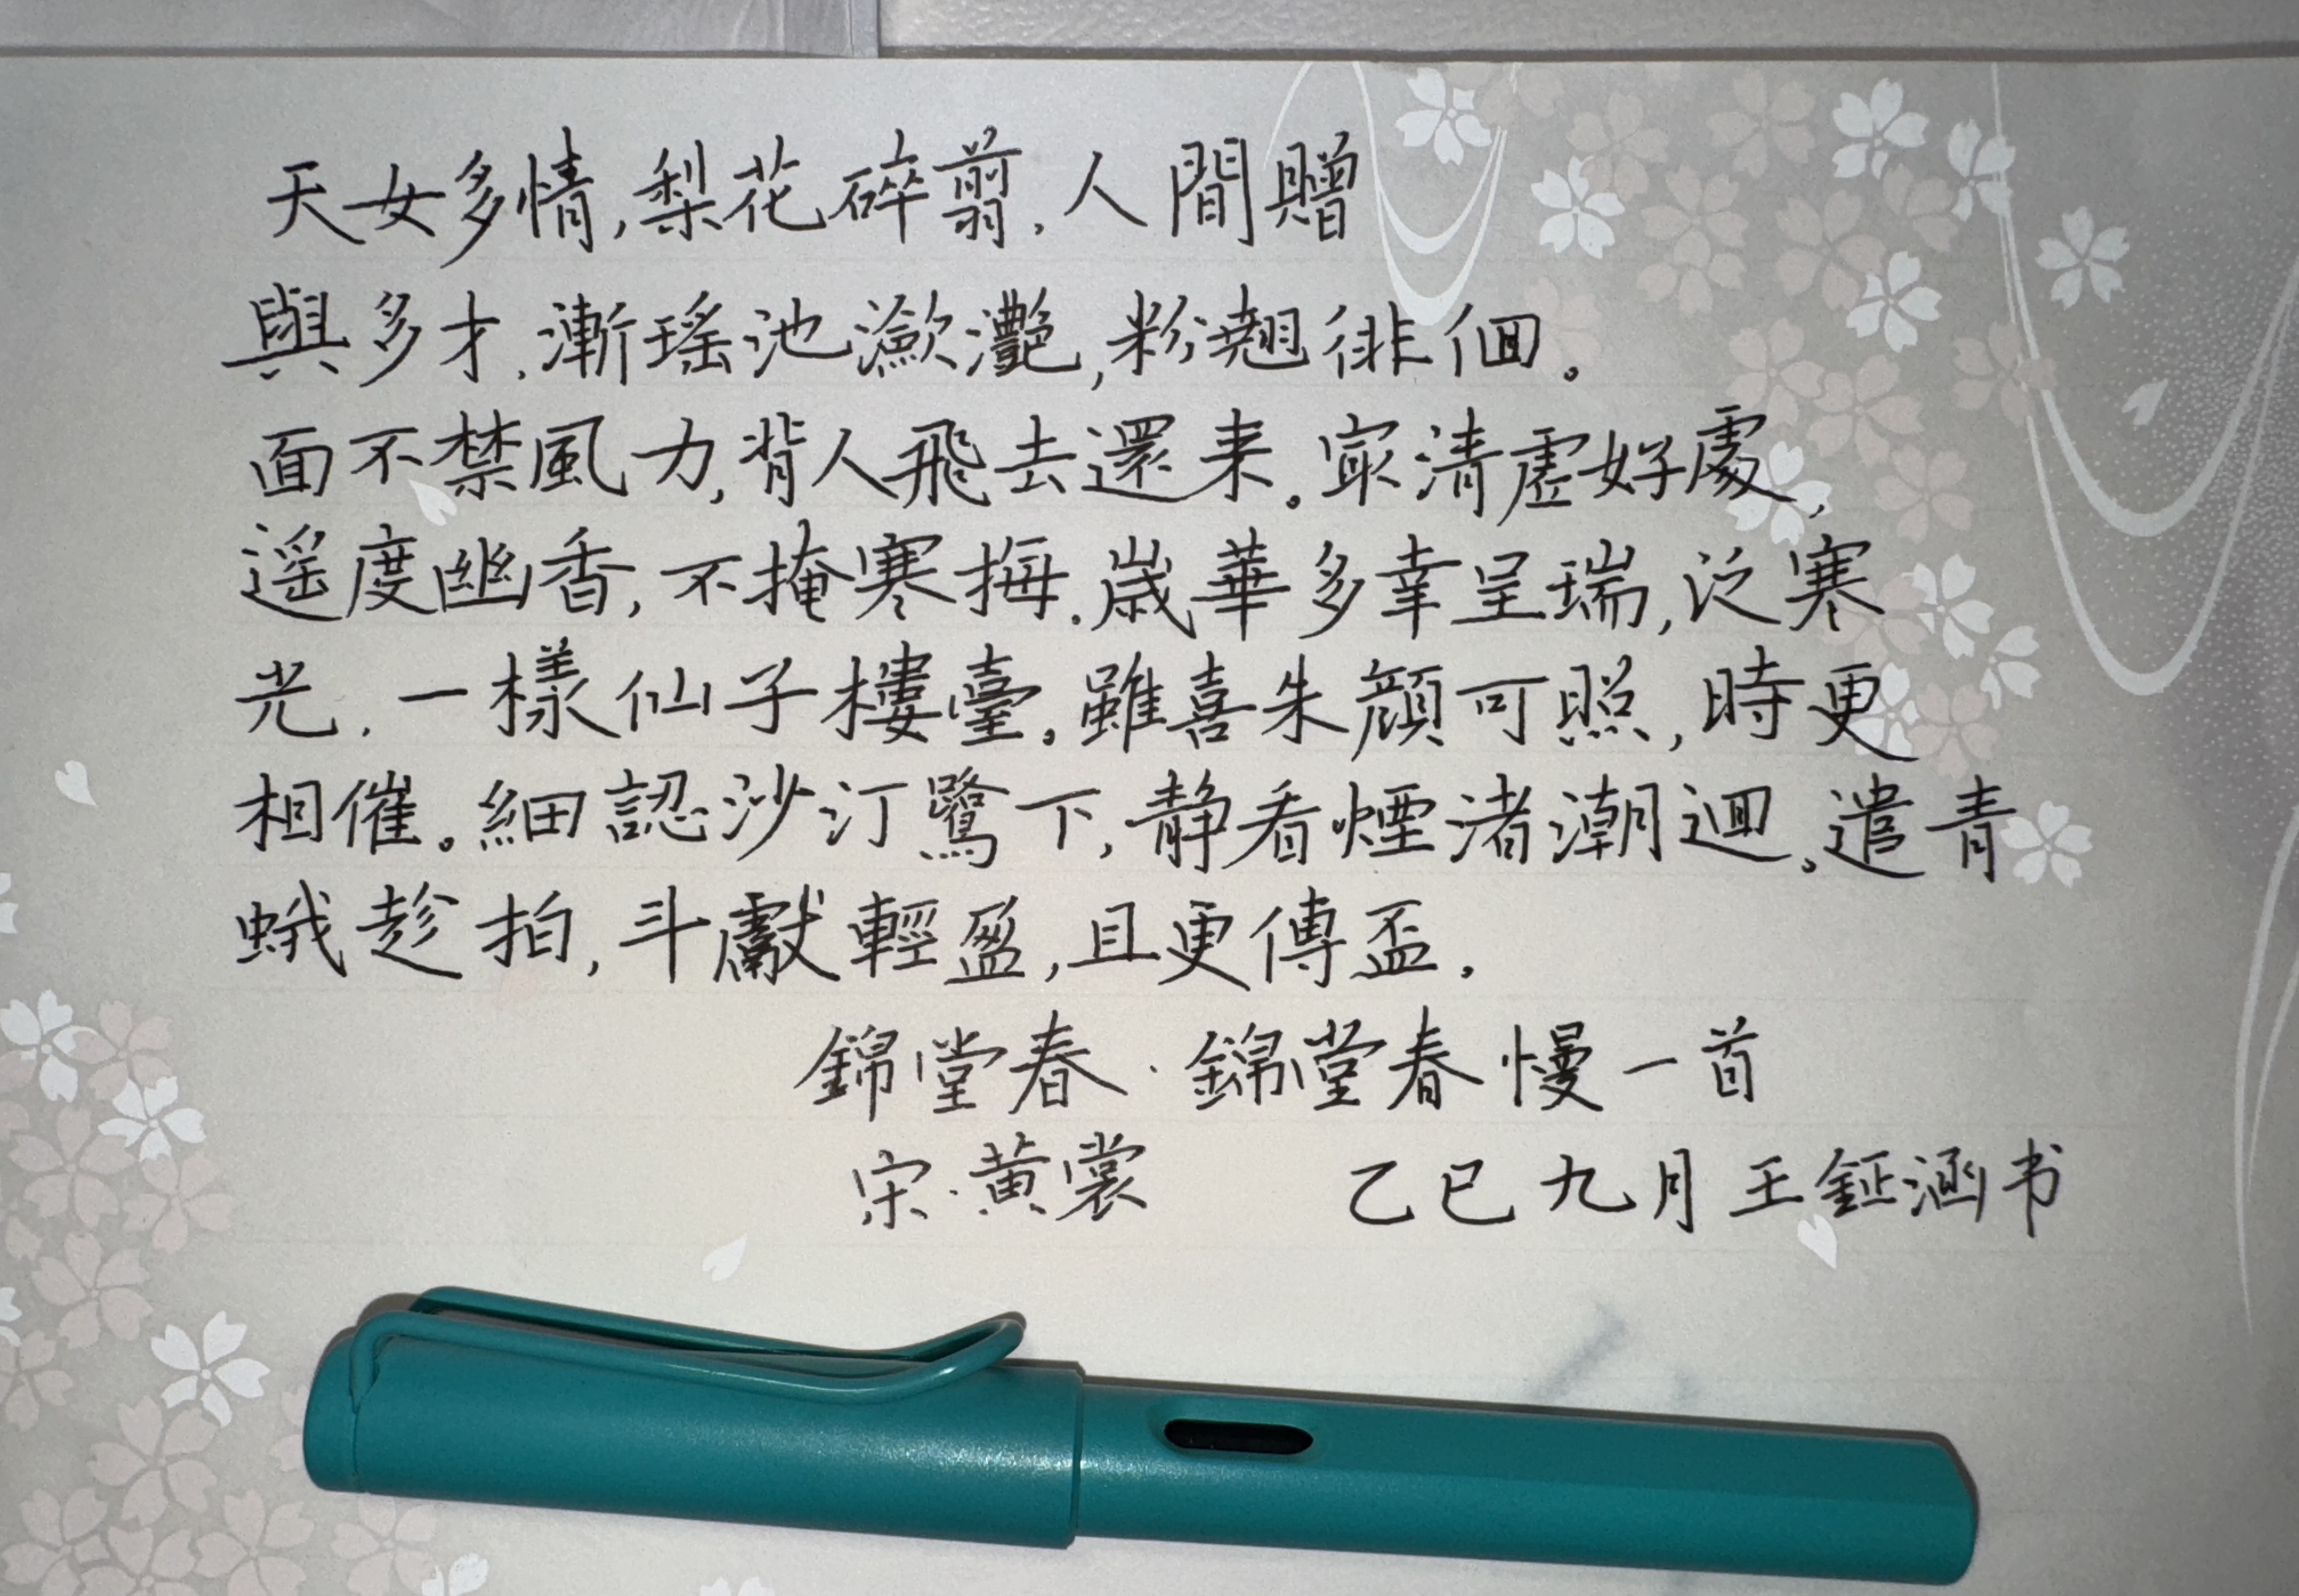 天女多情,梨花碎翦.人間贈
與多才.漸瑤池瀲灧,粉翹徘佪。
面不禁風力,背人飛去還来。㝡清虛好處,
遥度幽香,不掩寒梅.歲華多幸呈瑞,泛寒
光.一樣仙子樓臺。雖喜朱顔可照,時更
相催。細認沙汀鷺下,静看煙渚潮迴。遣青
蛾趁拍,斗獻輕盈,且更傳盃。
錦堂春·錦堂春慢一首
宋·黄裳 乙巳九月王鉦涵书